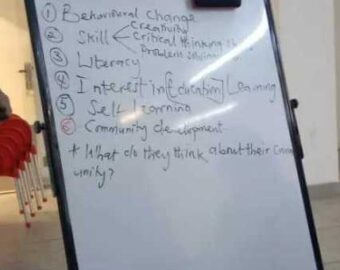 ① Behavioural Change
② Skill Creativity
Critical thinking
Problem solving
③ Literacy
④ Interest in [Education] Learning
⑤ Self Learning
⑥ Community development
* What do they think about their Comm
unity?